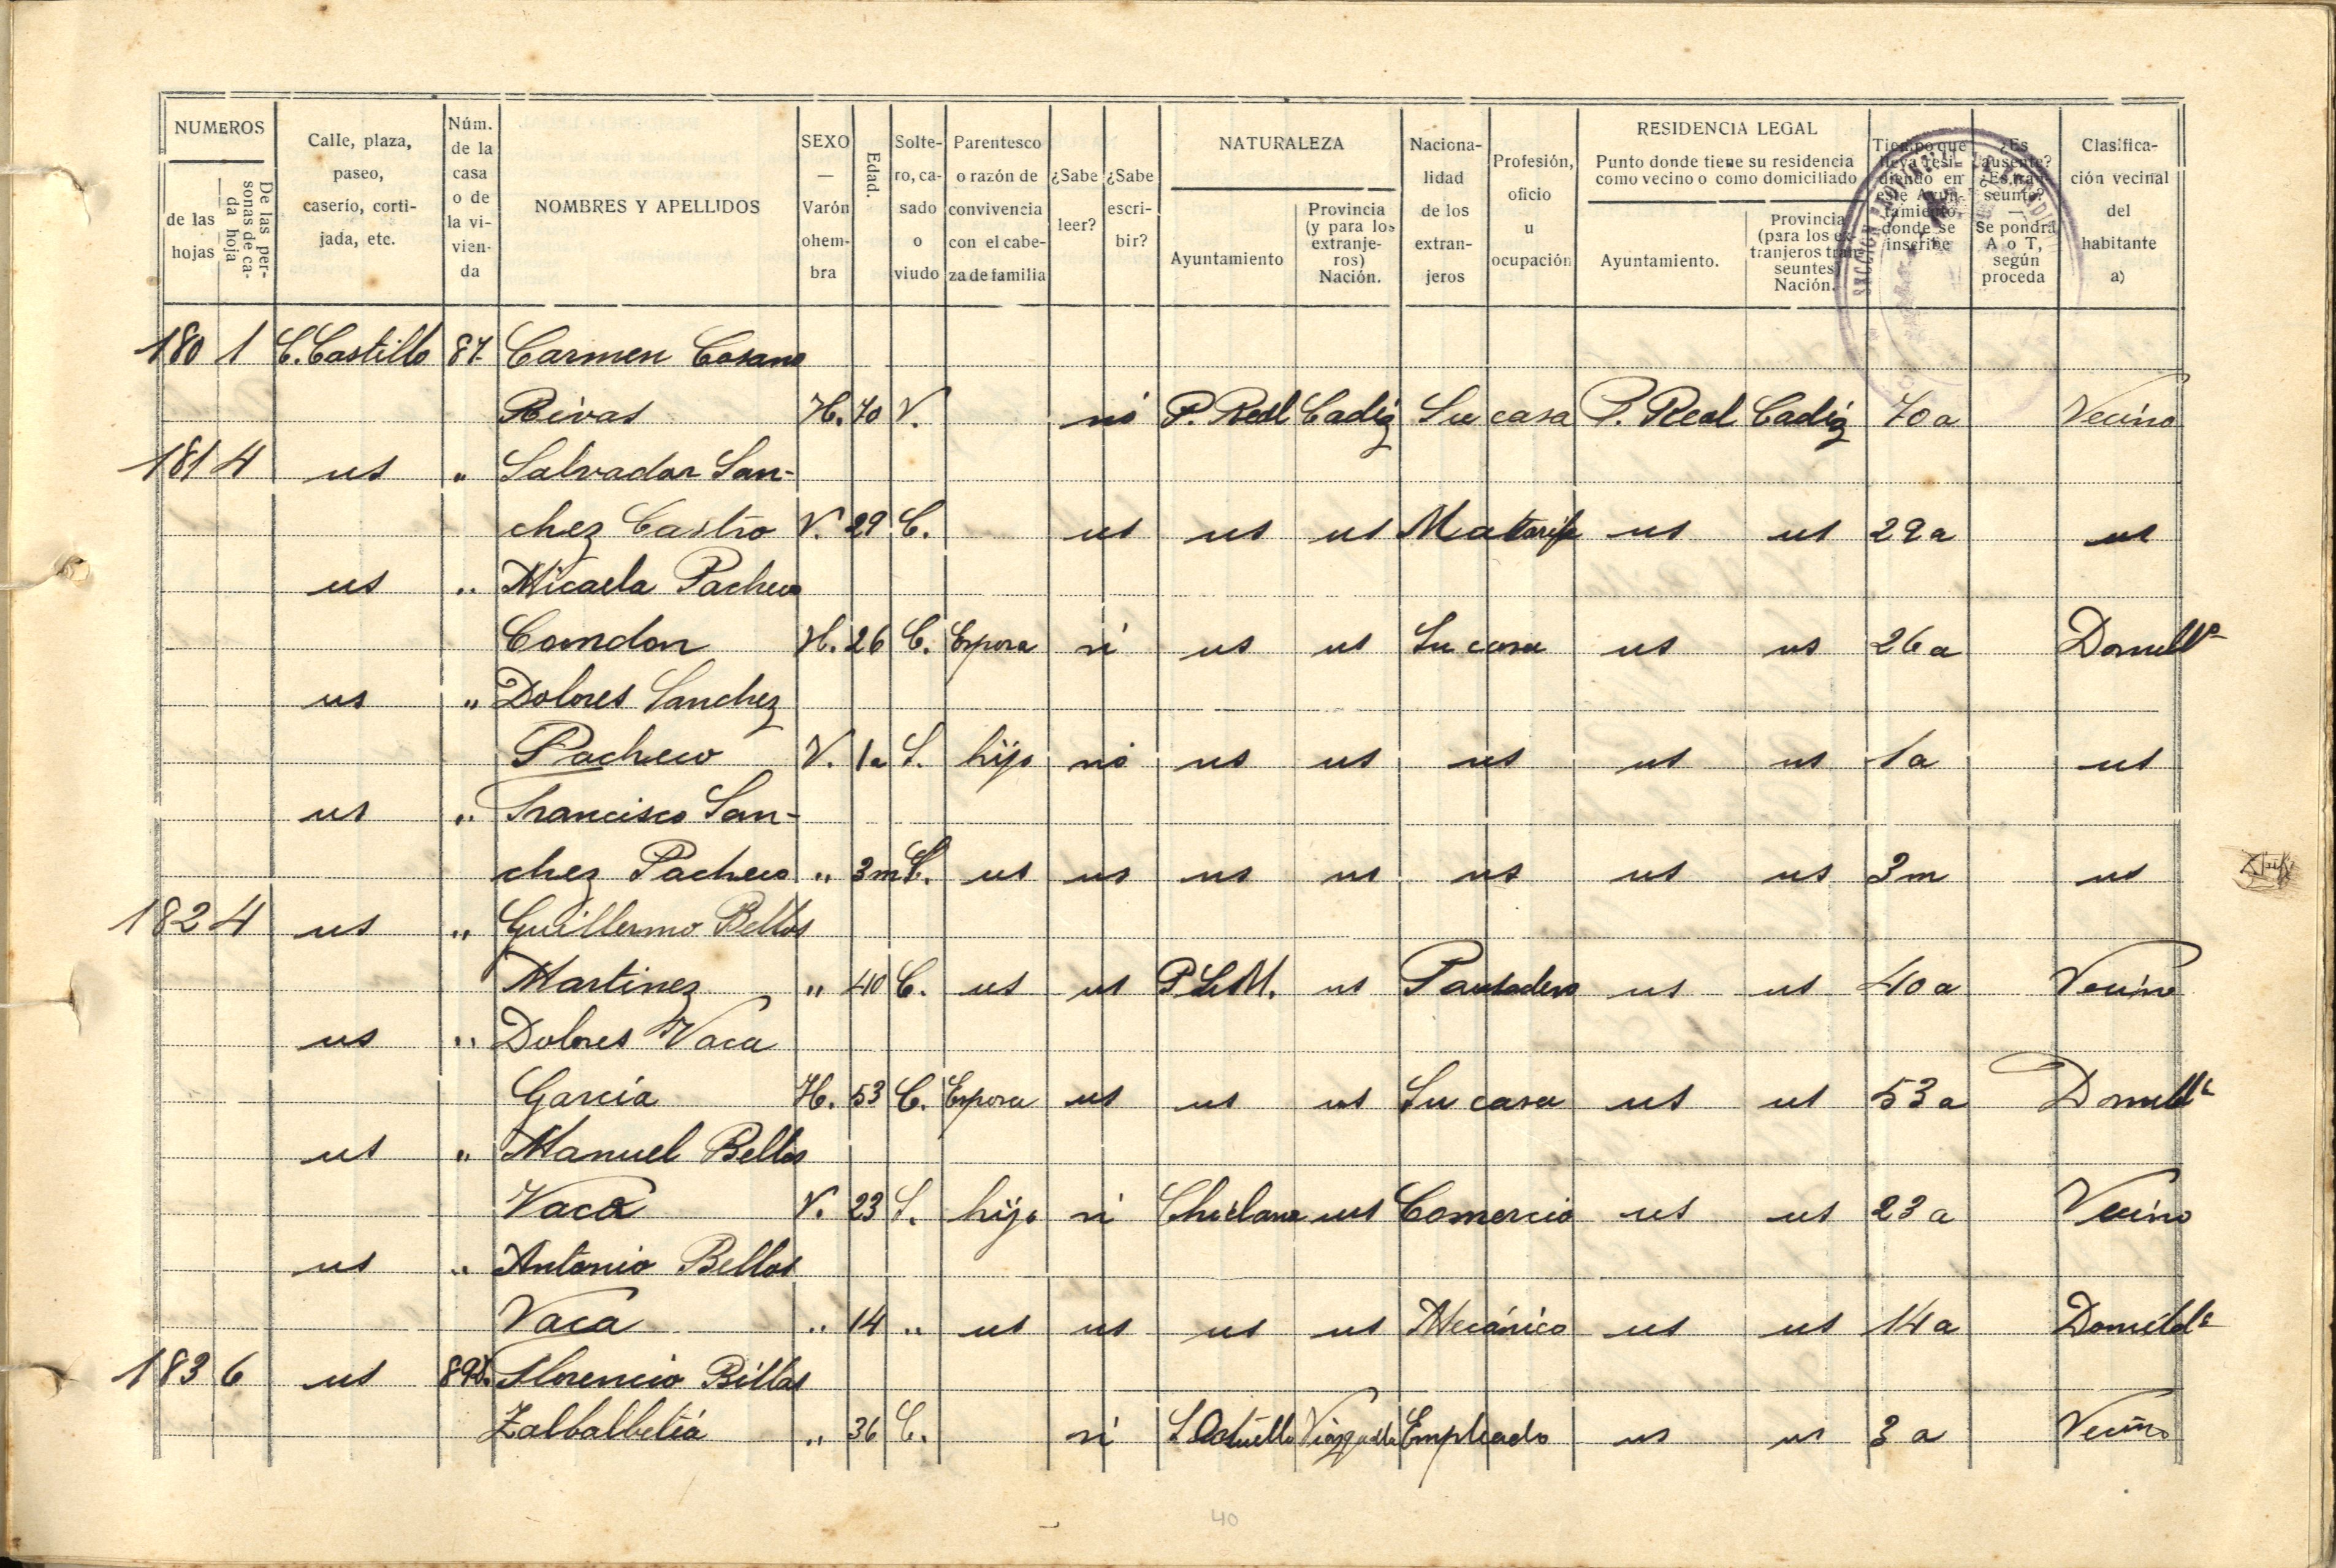 NUMEROS
de las hojas
De las personas de cada hoja
Calle, plaza, paseo, caserío, cortijada, etc.
Núm. de la casa o de la vivienda
NOMBRES Y APELLIDOS
SEXO — Varón ohembra
Edad.
Soltero, casado o viudo
Parentesco o razón de convivencia con el cabeza de familia
¿Sabe leer?
¿Sabe escribir?
NATURALEZA
Ayuntamiento
Provincia (y para los extranjeros) Nación.
Nacionalidad de los extranjeros
Profesión, oficio u ocupación
RESIDENCIA LEGAL
Punto donde tiene su residencia como vecino o como domiciliado
Ayuntamiento.
Provincia (para los extranjeros transeuntes) Nación.
Tiempo que lleva residiendo en este Ayuntamiento donde se inscribe
¿Es ausente? ¿Es transeunte? — Se pondrá A o T, según proceda
Clasificación vecinal del habitante a)
180 1 C. Castillo 87 Carmen Cosano
Rivas H. 70 V. no P. Real Cadiz Su casa P. Real Cadiz 70 a Vecino
181 4 us " Salvador San-
chez Castro V. 29 C. us us us Matarife us us 29 a us
us " Micaela Pacheco
Comdon H. 26 C. Esposa si us us Su casa us us 26 a
us " Dolores Sanchez
Pacheco V. 1a S. hijo no us us us us us 1 a us
us " Francisco San-
chez Pacheco " 3m S. us us us us us us us 3m us
182 4 us " Guillermo Bellos
Martinez " 40 C. us us us us us 40 a Vecino
us " Dolores Vaca
Garcia H. 53 C. Esposa us us us Su casa us us 53 a
us " Manuel Bellos
Vaca V. 23 S. hijo si Chiclana us Comercio us us 23 a Vecino
us " Antonio Bellos
Vaca " 14 " us us us us Mecánico us us 14 a
183 6 us Florencio Billas
" 36 C. si Empleado us us 3 a Vecino
40